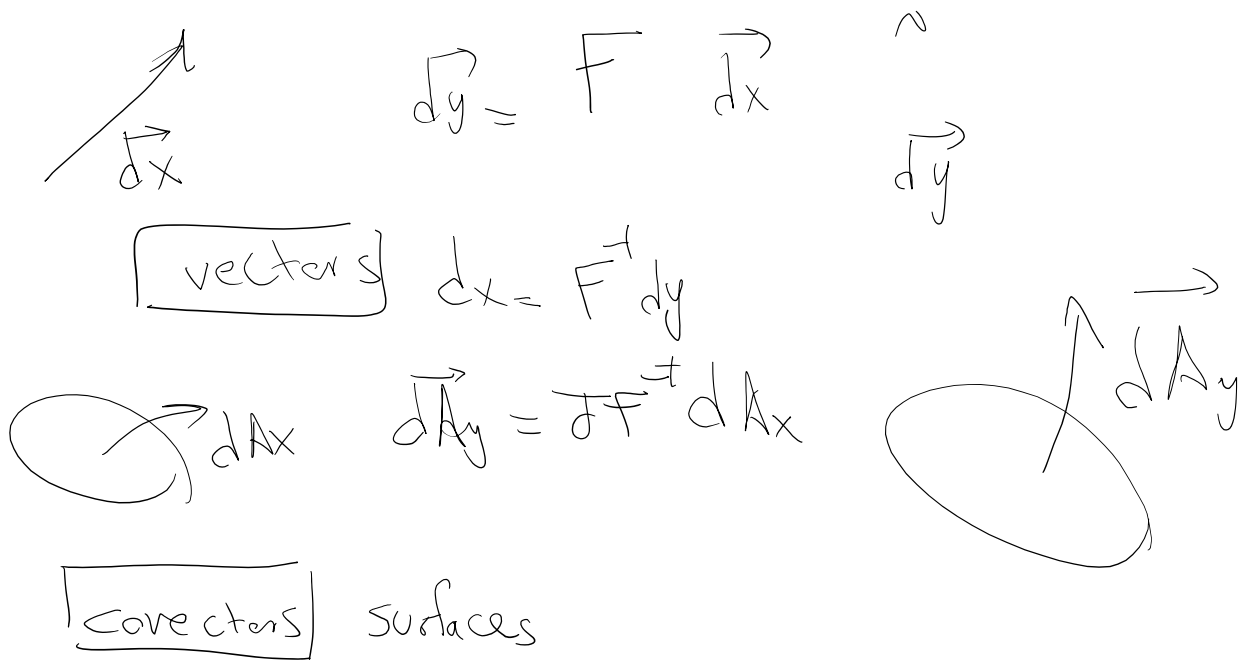 dy⃗ = F dx⃗
dx⃗
dy⃗
vectors dx = F⁻¹ dy
dA⃗y
dAx dA⃗y = J F⁻ᵗ dAx
covectors surfaces